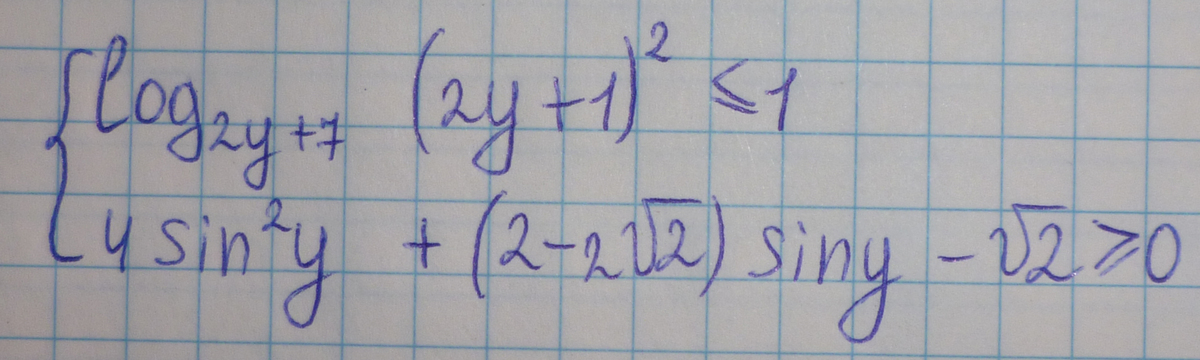 log₂y₊₇ (2y+1)² ⩽ 1
4 sin²y + (2-2√2) siny - √2 ⩾ 0